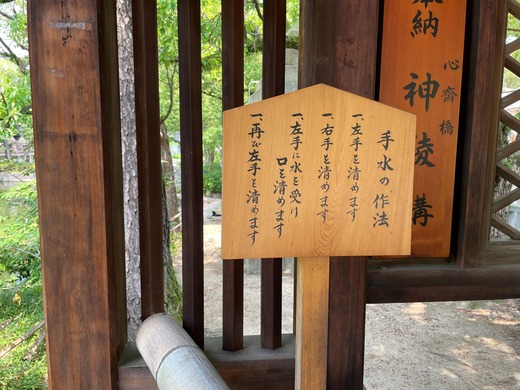 手水の作法
一、左手を清めます
一、右手を清めます
一、左手に水を受け
口を清めます
一、再び左手を清めます
奉納
心斎橋
神
講